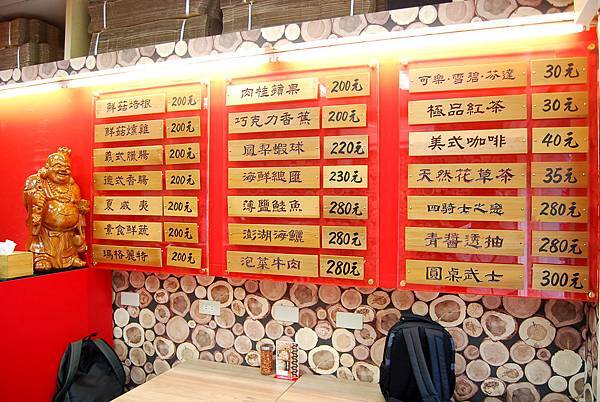 鮮菇培根 200元
鮮菇燻雞 200元
義式臘腸 200元
德式香腸 200元
夏威夷 200元
素食鮮蔬 200元
瑪格麗特 200元
肉桂蘋果 200元
巧克力香蕉 200元
鳳梨蝦球 220元
海鮮總匯 230元
薄鹽鮭魚 280元
澎湖海鱺 280元
泡菜牛肉 280元
可樂·雪碧·芬達 30元
極品紅茶 30元
美式咖啡 40元
天然花草茶 35元
四騎士之戀 280元
青醬透抽 280元
圓桌武士 300元